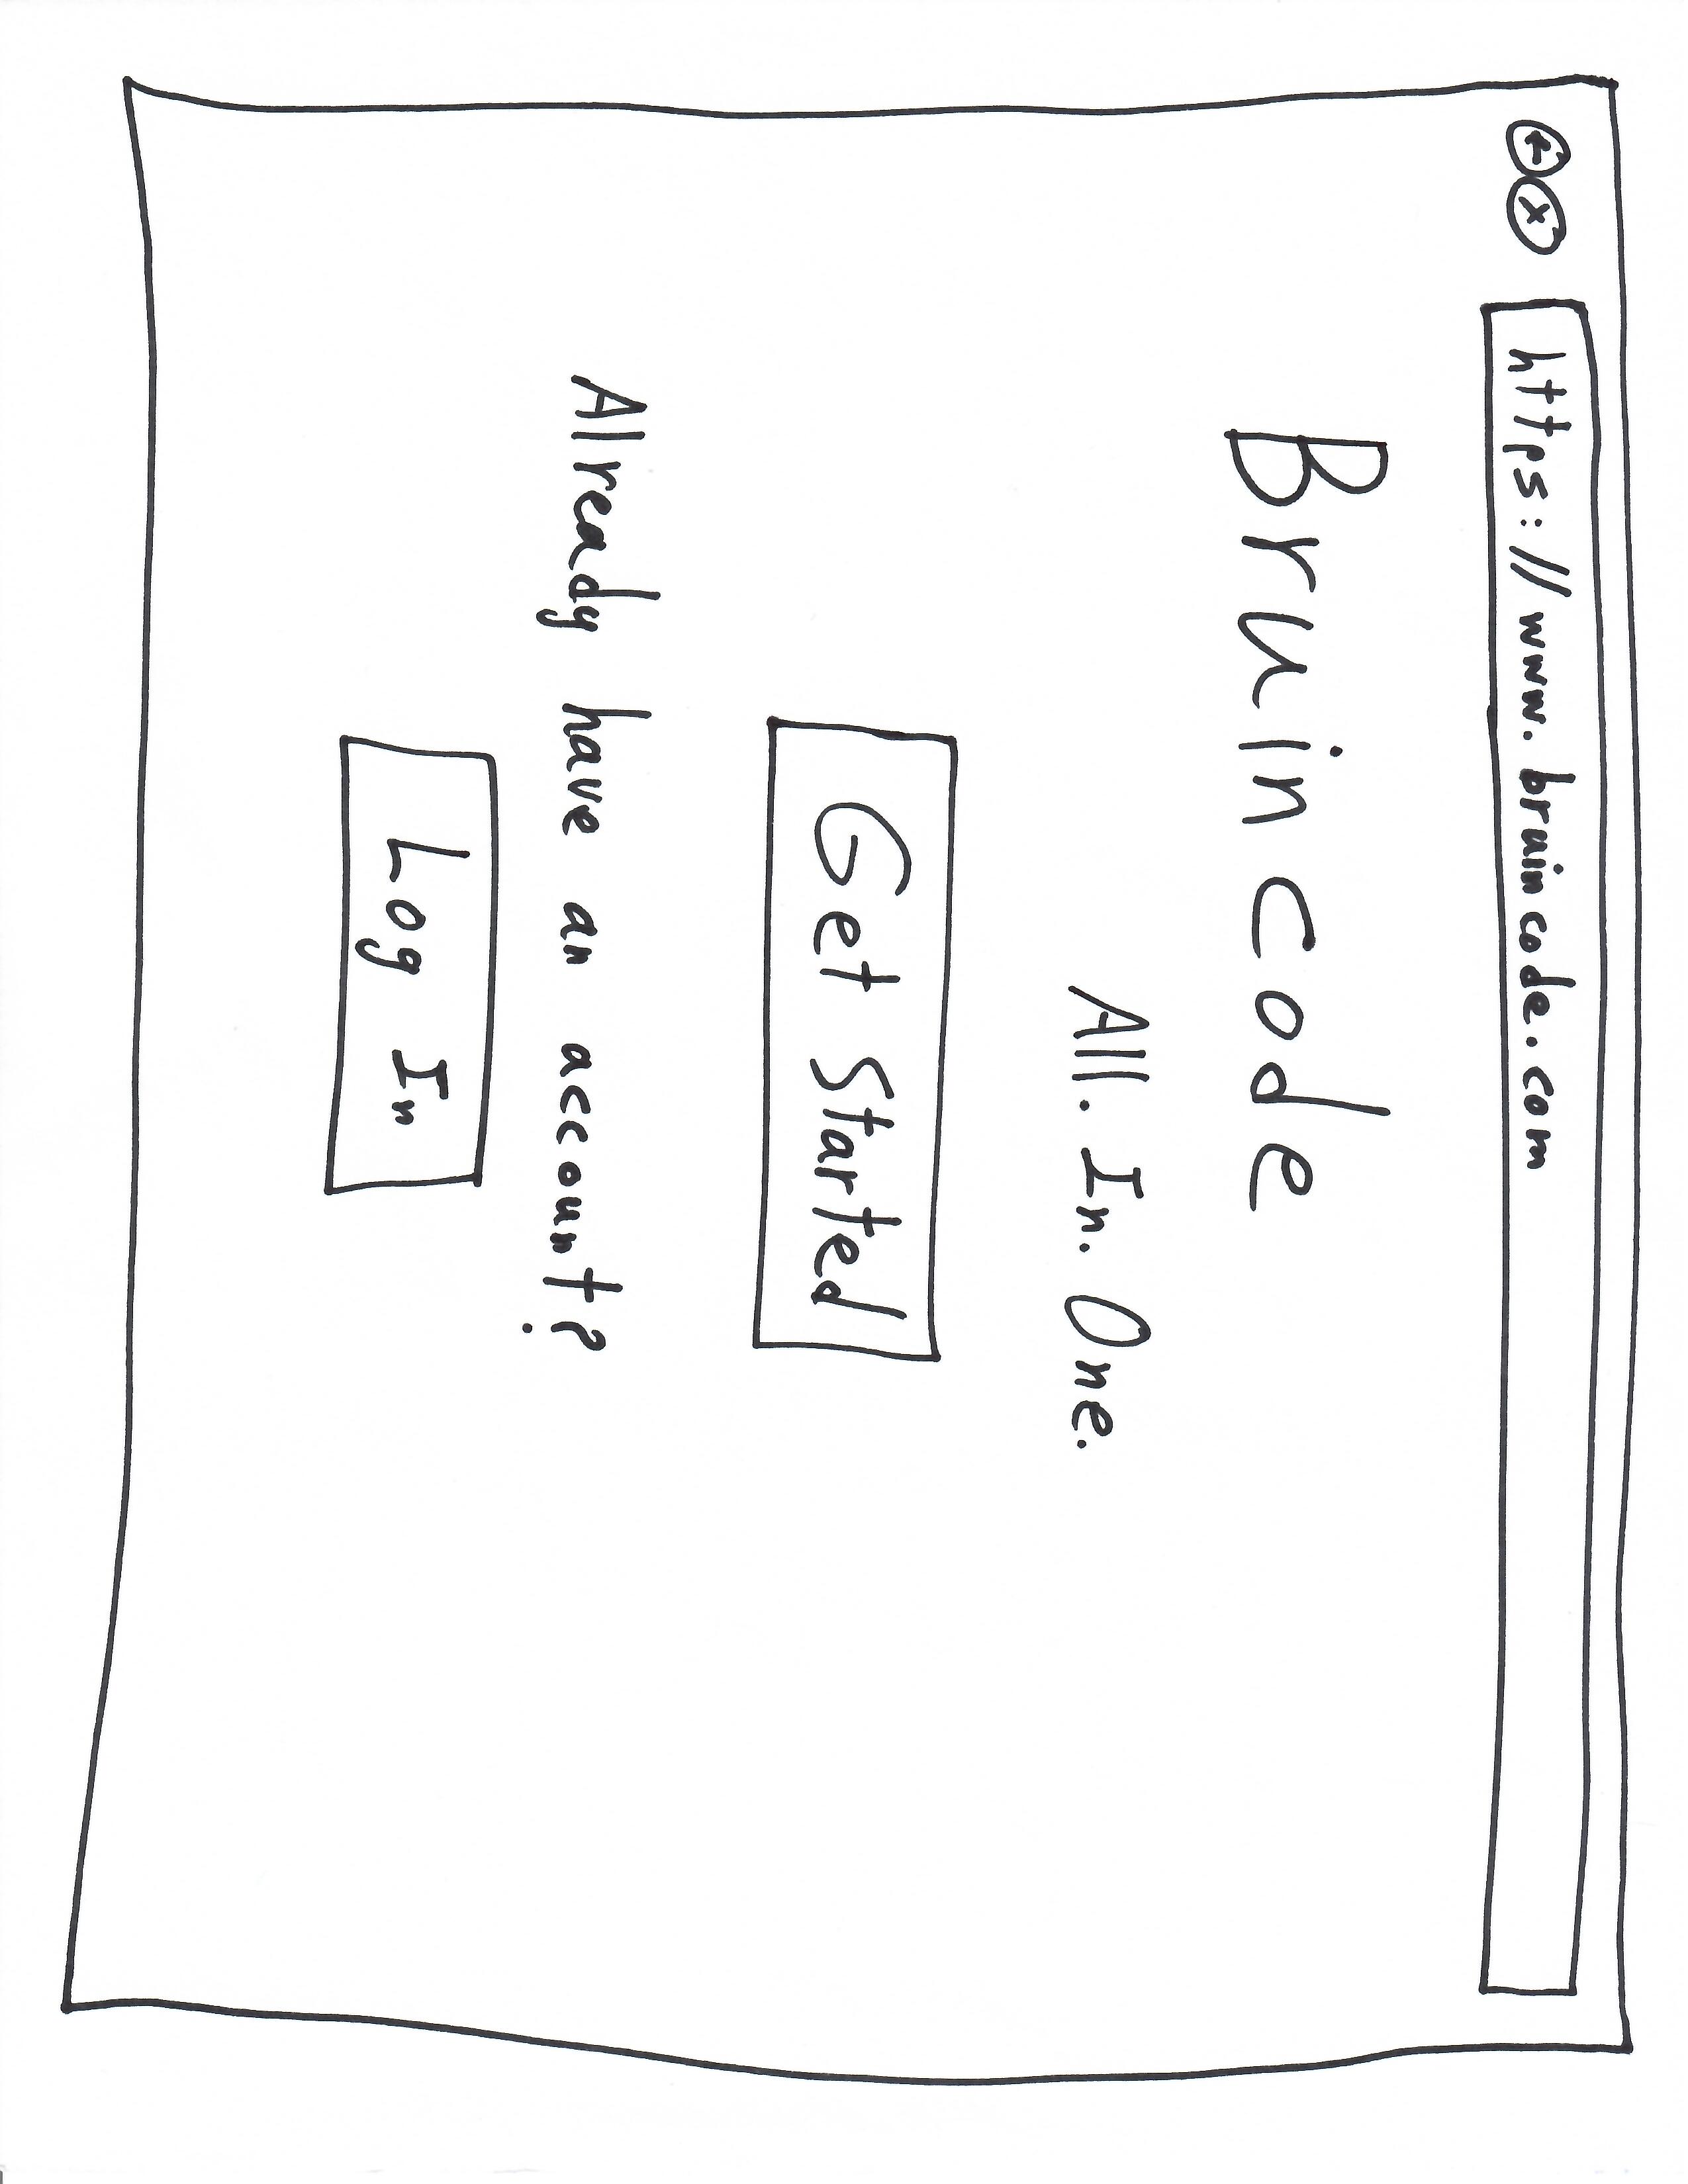 https://www.bruincode.com
Bruincode
All. In. One.
Get Started
Already have an account?
Log In